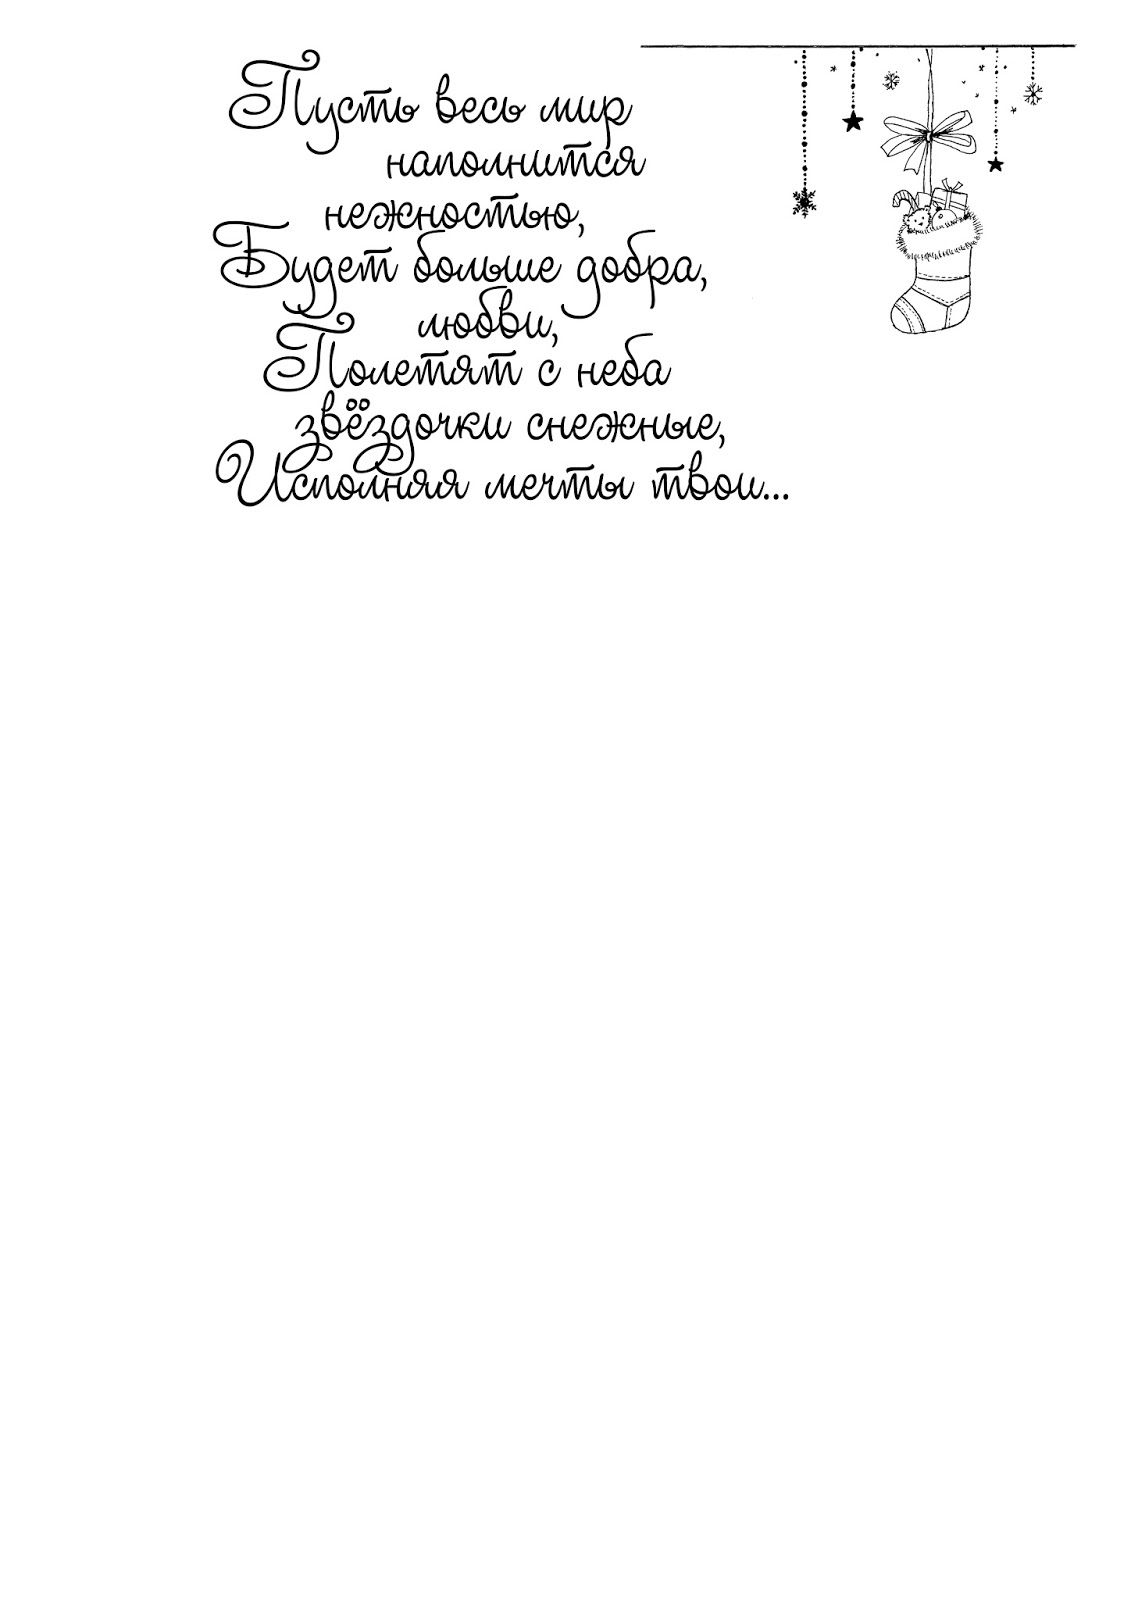 Пусть весь мир
наполнится
нежностью,
Будет больше добра,
любви,
Полетят с неба
звёздочки снежные,
Исполняя мечты твои...